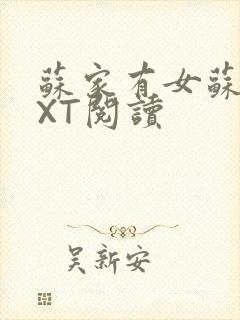 蘇家有女蘇
XT閱讀
吴新安